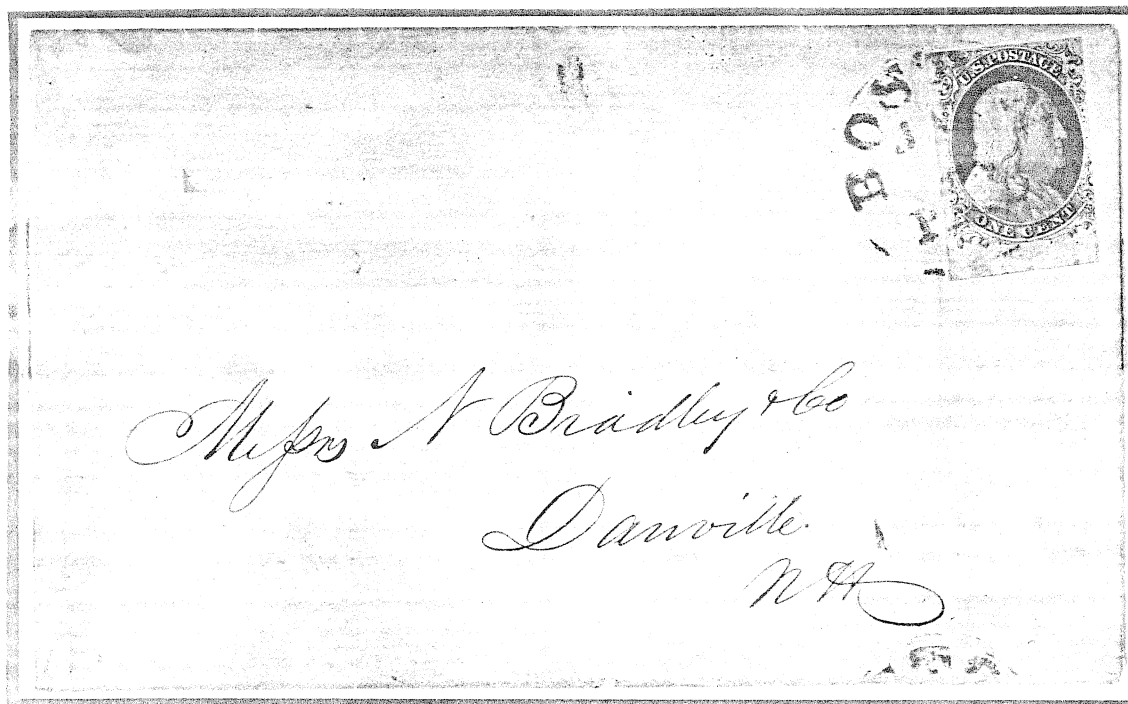 BOS
U.S. POSTAGE
ONE CENT
Messrs N Bradley & Co
Danville.
NH